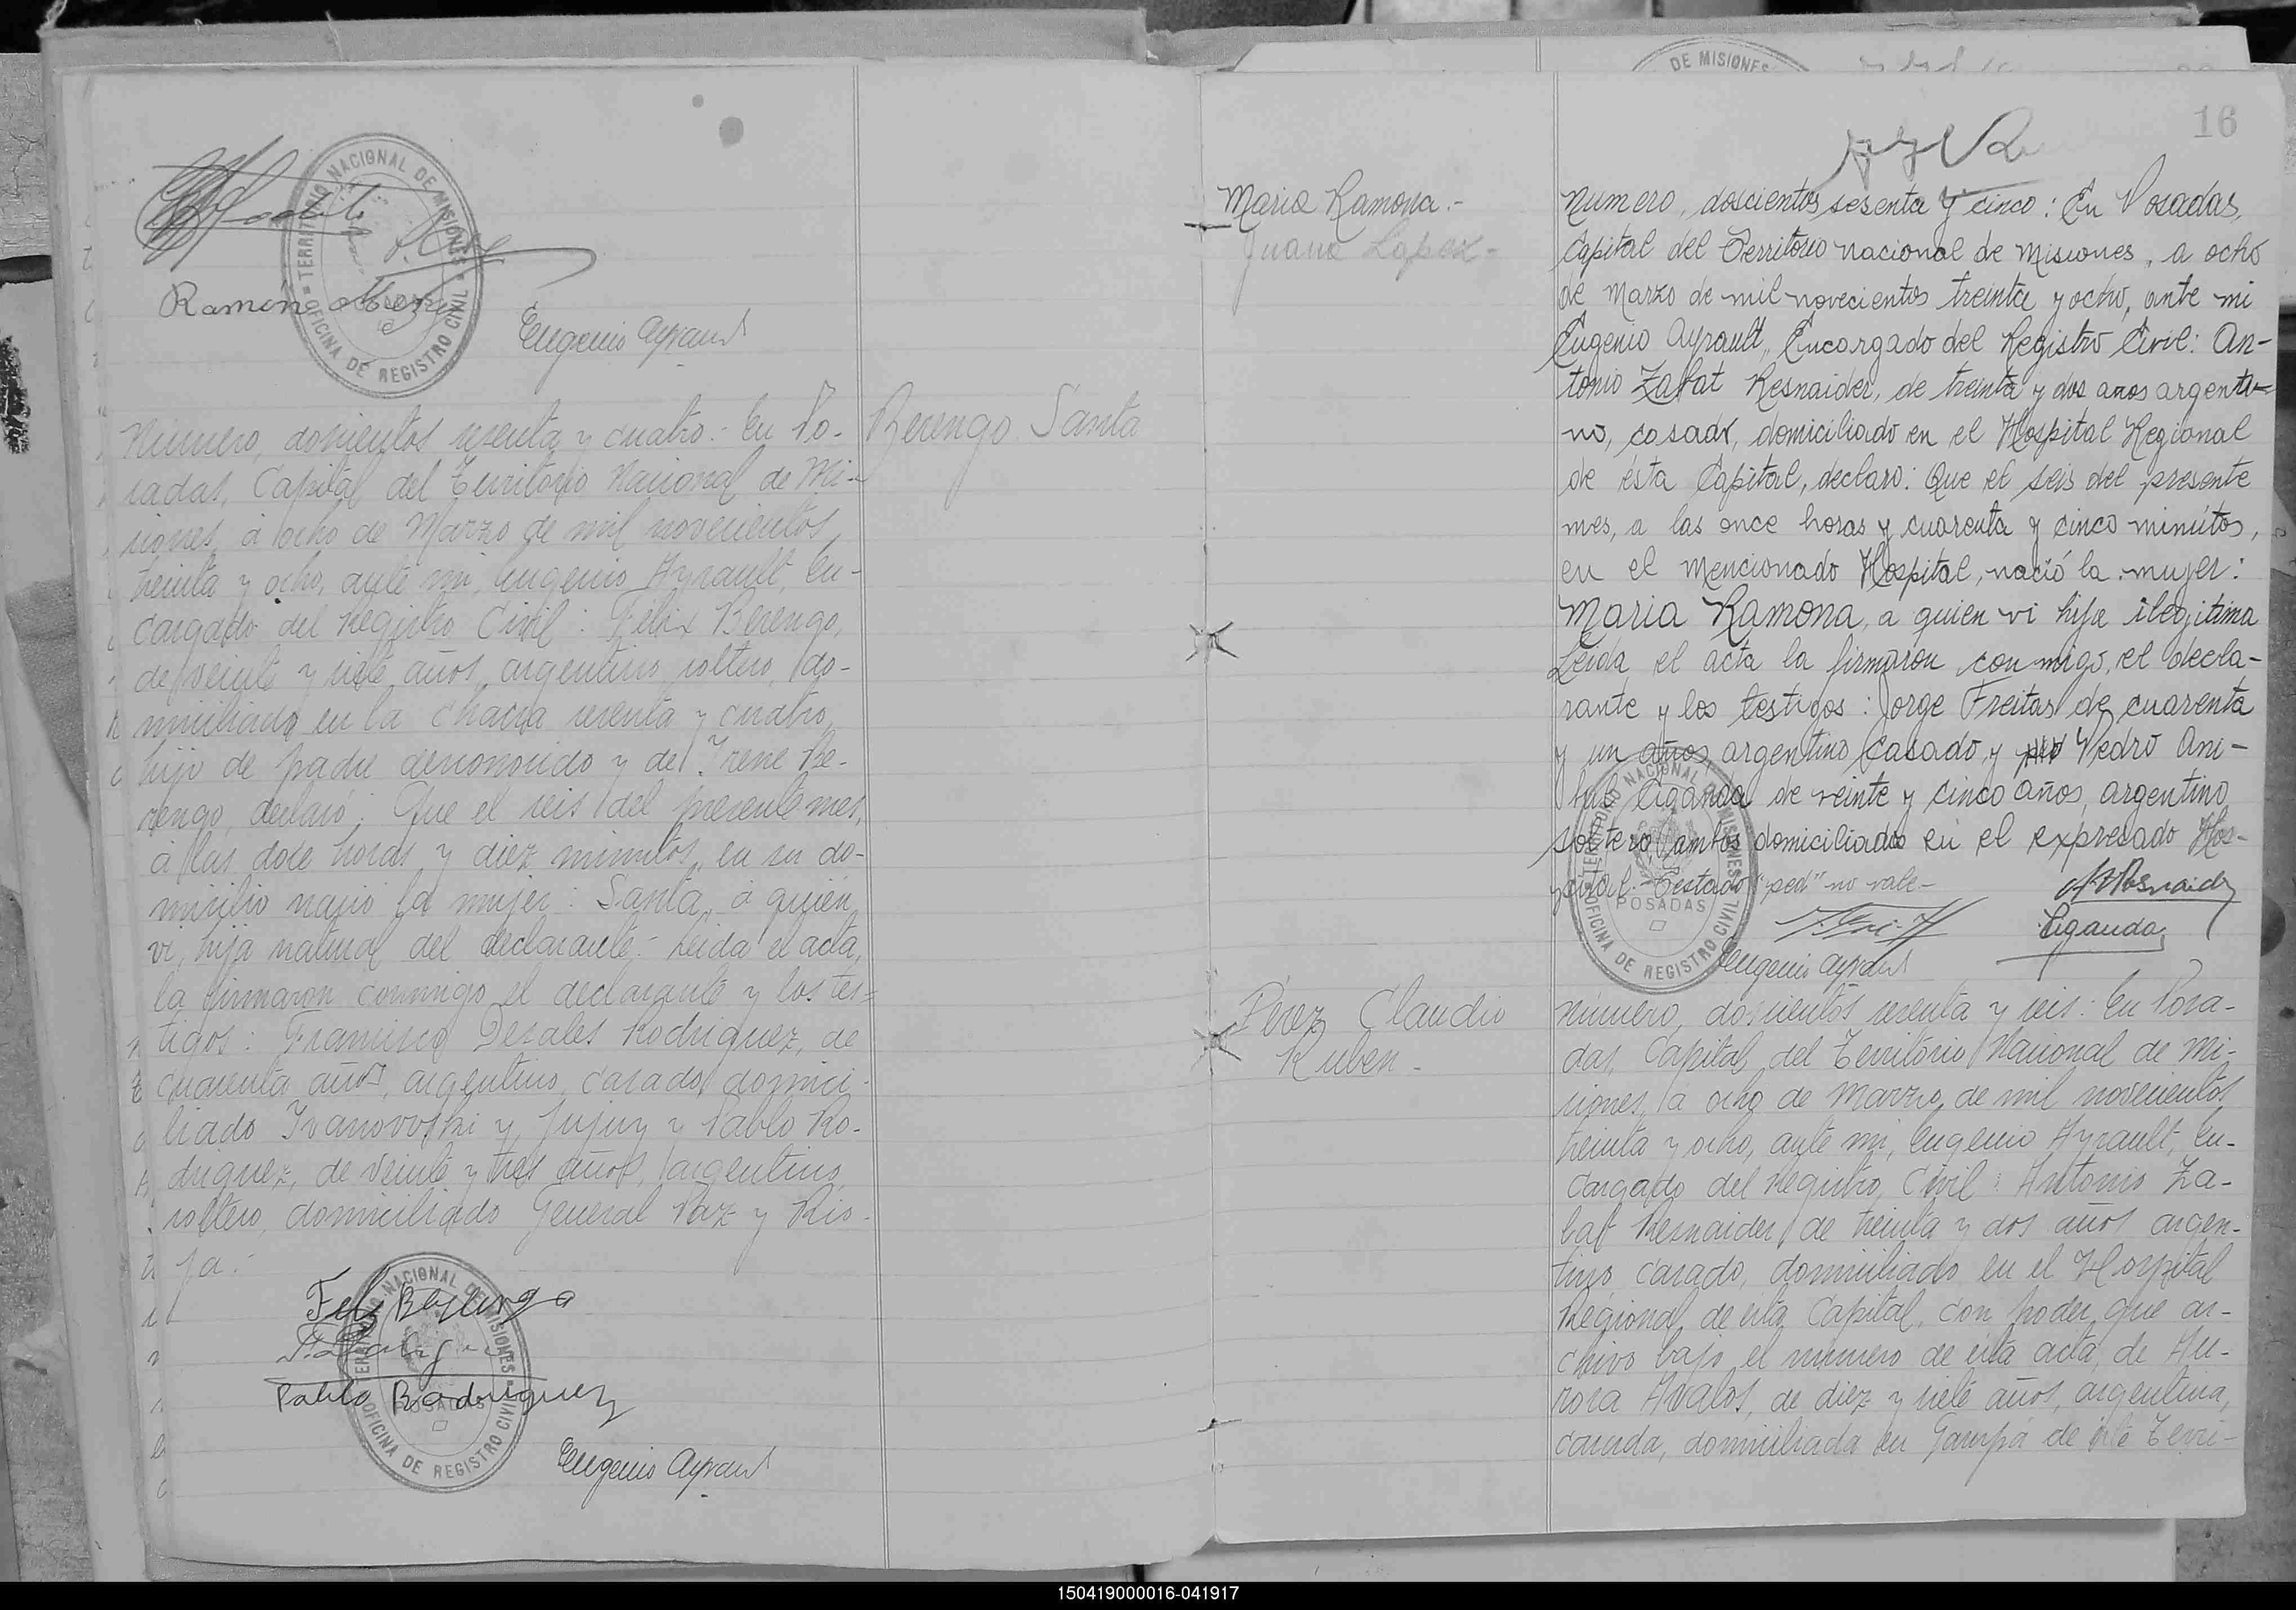 TERRITORIO NACIONAL DE MISIONES
OFICINA DE REGISTRO CIVIL
Ramón
Eugenio Ayrault
Número, doscientos sesenta y cuatro.- En Po-
sadas, Capital del Territorio Nacional de Mi-
siones, á ocho de Marzo de mil novecientos
treinta y ocho, ante mi, Eugenio Ayrault, En-
cargado del Registro Civil: Félix Berengo,
de veinte y siete años, argentino, soltero, do-
miciliado en la chacra sesenta y cuatro,
hijo de padre desconocido y de Irene Be-
rengo, declaró: Que el seis del presente mes,
á las doce horas y diez minutos, en su do-
micilio nació la mujer: Santa, á quien
vi, hija natural del declarante.- Leida el acta,
la firmaron conmigo el declarante y los tes-
tigos: Francisco Desales Rodriguez, de
cuarenta años, argentino, casado, domici-
liado Ivanovski y Jujuy y Pablo Ro-
driguez, de veinte y tres años, argentino,
soltero, domiciliado General Paz y Rio-
ja.-
Berengo Santa
TERRITORIO NACIONAL DE MISIONES
POSADAS
OFICINA DE REGISTRO CIVIL
Pablo Rodriguez
Eugenio Ayrault
DE MISIONES
16
Maria Ramona.-
Juana Lopez-
Numero, doscientos sesenta y cinco: En Posadas,
Capital del Territorio nacional de Misiones, a ocho
de Marzo de mil novecientos treinta y ocho, ante mi
Eugenio Ayrault, Encargado del Registro Civil: An-
tonio Zabat Resnaider, de treinta y dos años argenti-
no, casado, domiciliado en el Hospital Regional
de ésta Capital, declaro: Que el seis del presente
mes, a las once horas y cuarenta y cinco minútos,
en el mencionado Hospital, nació la mujer:
Maria Ramona, a quien vi hija ilegitima
Leida el acta la firmaron conmigo, el decla-
rante y los testigos: Jorge Freitas de cuarenta
y un años, argentino casado, y Pedro Ani-
Ciganda de veinte y cinco años, argentino
soltero ambos domiciliados en el expresado Hos-
pital. Testado "ped" no vale-
TERRITORIO NACIONAL DE MISIONES
POSADAS
OFICINA DE REGISTRO CIVIL
Ciganda
Eugenio Ayrault
Pérez Claudio
Ruben-
Número, doscientos sesenta y seis: En Posa-
das, Capital del Territorio Nacional de Mi-
siones, á ocho de Marzo, de mil novecientos
treinta y ocho, ante mi, Eugenio Ayrault, En-
cargado del Registro Civil: Antonio Za-
bat Resnaider, de treinta y dos años argen-
tino, casado, domiciliado en el Hospital
Regional de esta Capital, con poder que ar-
chivo bajo el número de esta acta, de Au-
rora Avalos, de diez y siete años, argentina,
casada, domiciliada en Garupá de este Terri-
150419000016-041917